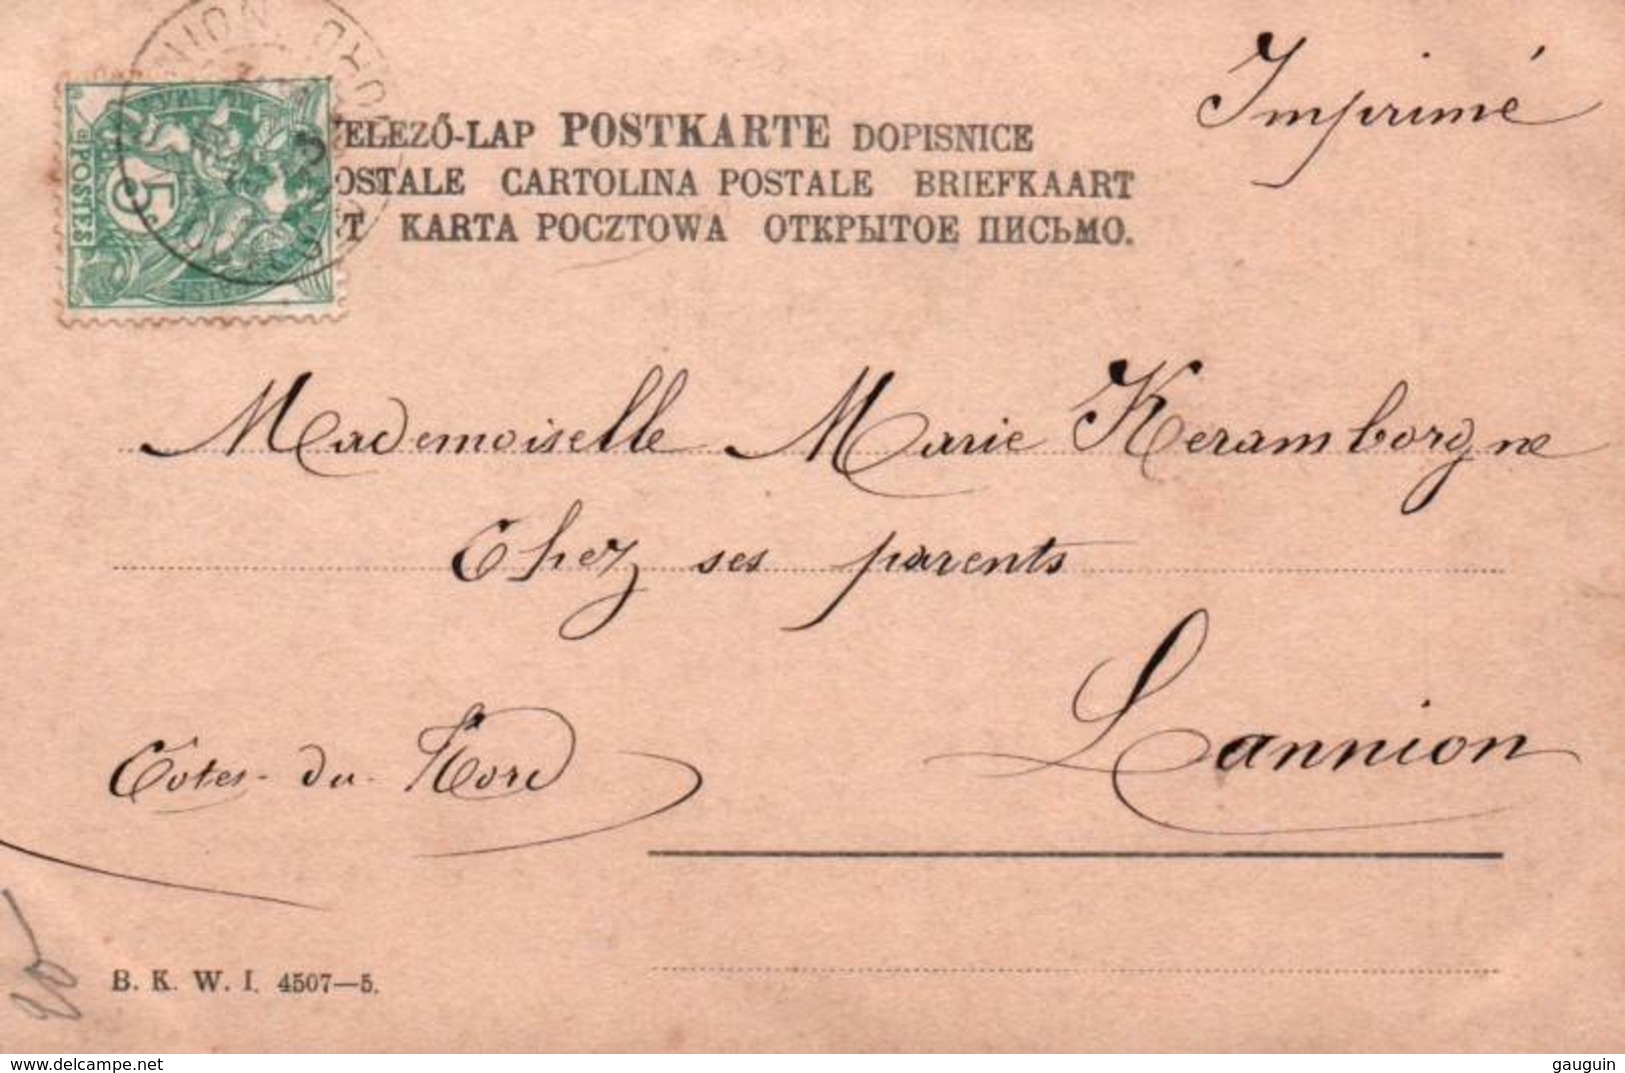 Imprimé
ELEZŐ-LAP POSTKARTE DOPISNICE
OSTALE CARTOLINA POSTALE BRIEFKAART
T KARTA POCZTOWA ОТКРЫТОЕ ПИСЬМО.
5
POSTES
Mademoiselle Marie Keramborgne
Chez ses parents
Lannion
Côtes-du-Nord
20
B. K. W. I. 4507—5.
www.delcampe.net
gauguin